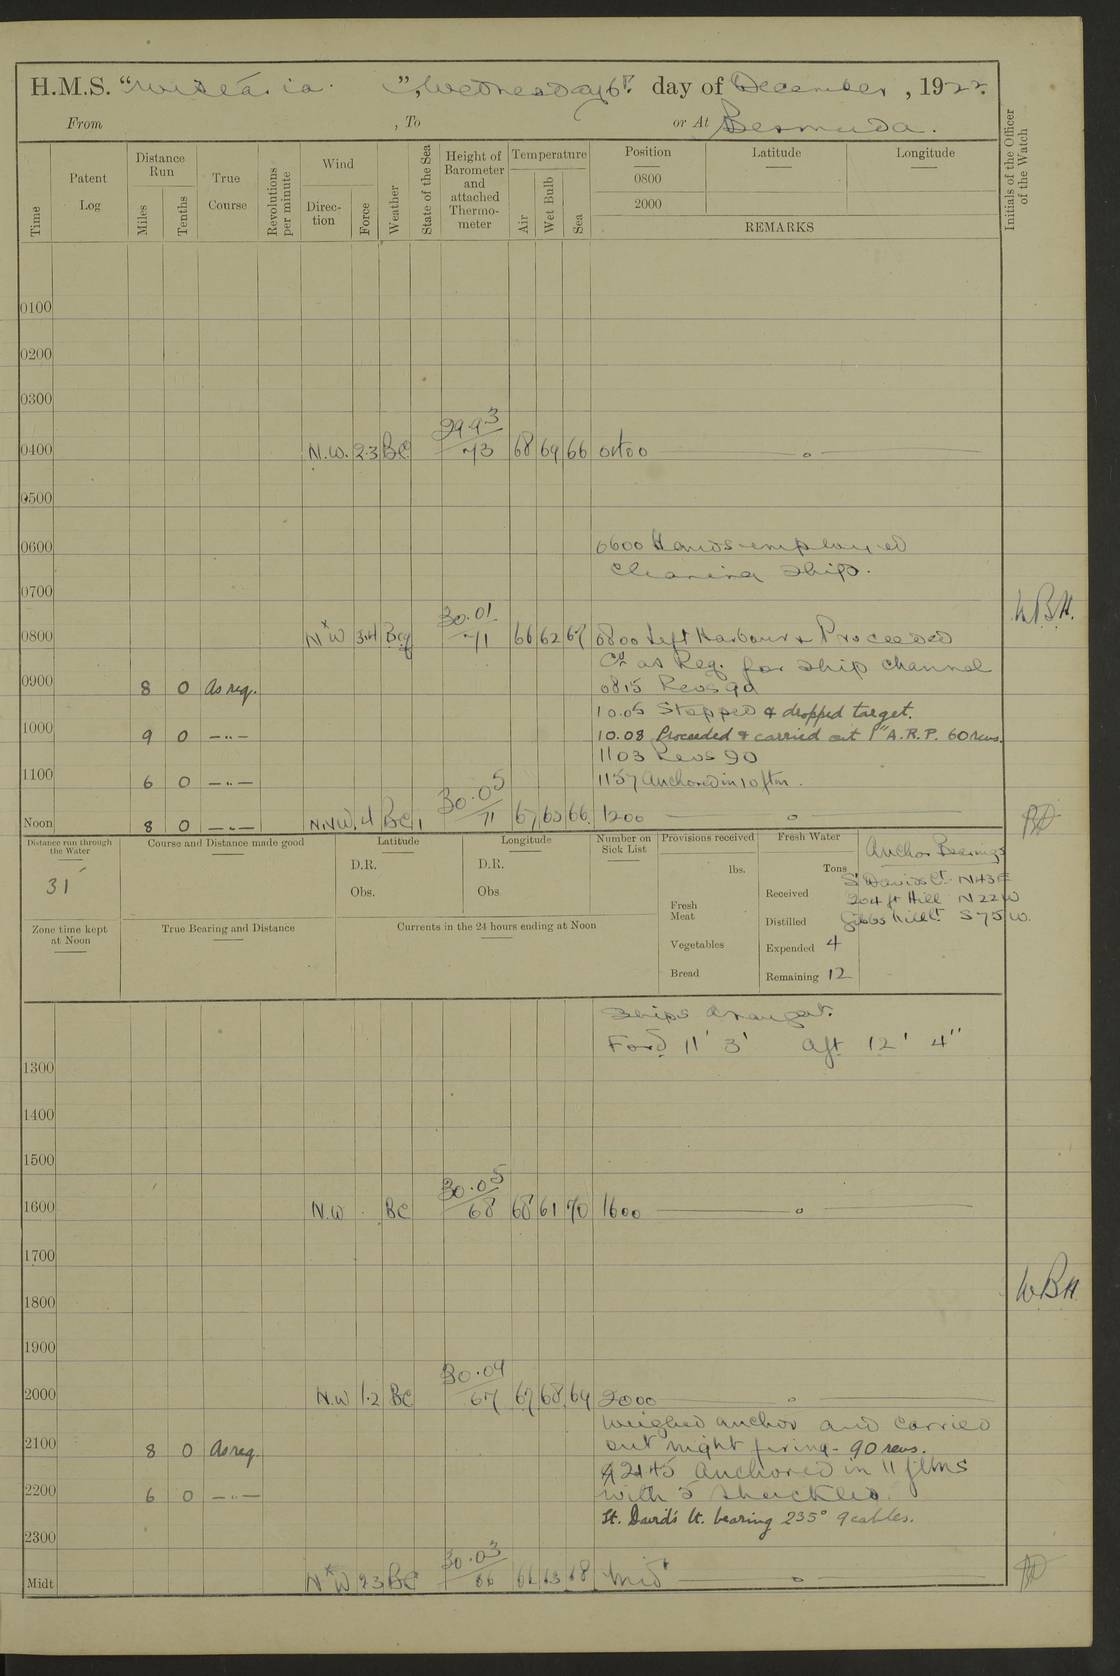 H.M.S. "Wistaria", Wednesday 6th day of December, 1922.
From , To or At Bermuda.
Time Patent Log Distance Run Miles Tenths True Course Revolutions per minute Wind Direction Force Weather State of the Sea Height of Barometer and attached Thermometer Temperature Air Wet Bulb Sea Position 0800 2000 Latitude Longitude REMARKS Initials of the Officer of the Watch
0100
0200
0300
0400 N.W. 2.3 BC 29.93/73 68 64 66 0400 —— " ——
0500
0600 0600 Hands employed
cleaning ship.
0700 W.B.H.
0800 NxW 3.4 Bcq 30.01/71 66 62 67 0800 Left Harbour & Proceeded
Co as Req. for ship channel
0900 8 0 As req. 0815 Revs 90
10.05 Stopped & dropped target.
1000 9 0 —..— 10.08 Proceeded & carried out 1" A.R.P. 60 revs.
1103 Revs 90
1100 6 0 —..— 1157 Anchored in 10 ftm.
Noon 8 0 —..— N.NW. 4 BC 30.05/71 67 63 66 1200 —— " ——
Distance run through the Water Course and Distance made good Latitude Longitude Number on Sick List Provisions received Fresh Water Anchor Bearings
31 D.R. D.R. lbs. Tons St Davids Lt. N43E
Obs. Obs. Received 204 ft Hill N22W
Fresh Meat Distilled Gibbs Hill Lt S75W.
Zone time kept at Noon True Bearing and Distance Currents in the 24 hours ending at Noon
Vegetables Expended 4
Bread Remaining 12
Ships draught.
Ford 11' 3' aft 12' 4"
1300
1400
1500
1600 N.W BC 30.05/68 68 61 70 1600 —— " ——
1700
1800 W.B.H
1900
2000 N.W 1.2 BC 30.04/67 67 68 64 2000 —— " ——
Weighed anchor and carried
2100 8 0 As req. out night firing - 90 revs.
2145 anchored in 11 ftms
2200 6 0 —..— with 5 shackles.
St. David's Lt. bearing 235° 9 cables.
2300
Midt NxW 2.3 BC 30.03/66 66 63 68 Midt —— " ——